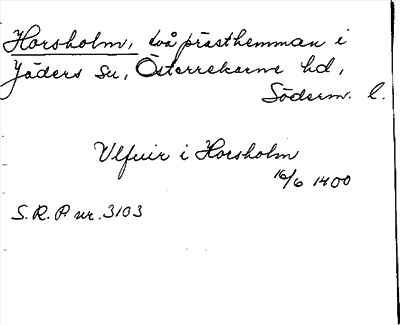 Horsholm, två prästhemman i
Jäders su, Österrekarne hd,
Söderm. l.
Ulfuir i Horsholm
16/6 1400
S.R.P. nr. 3103